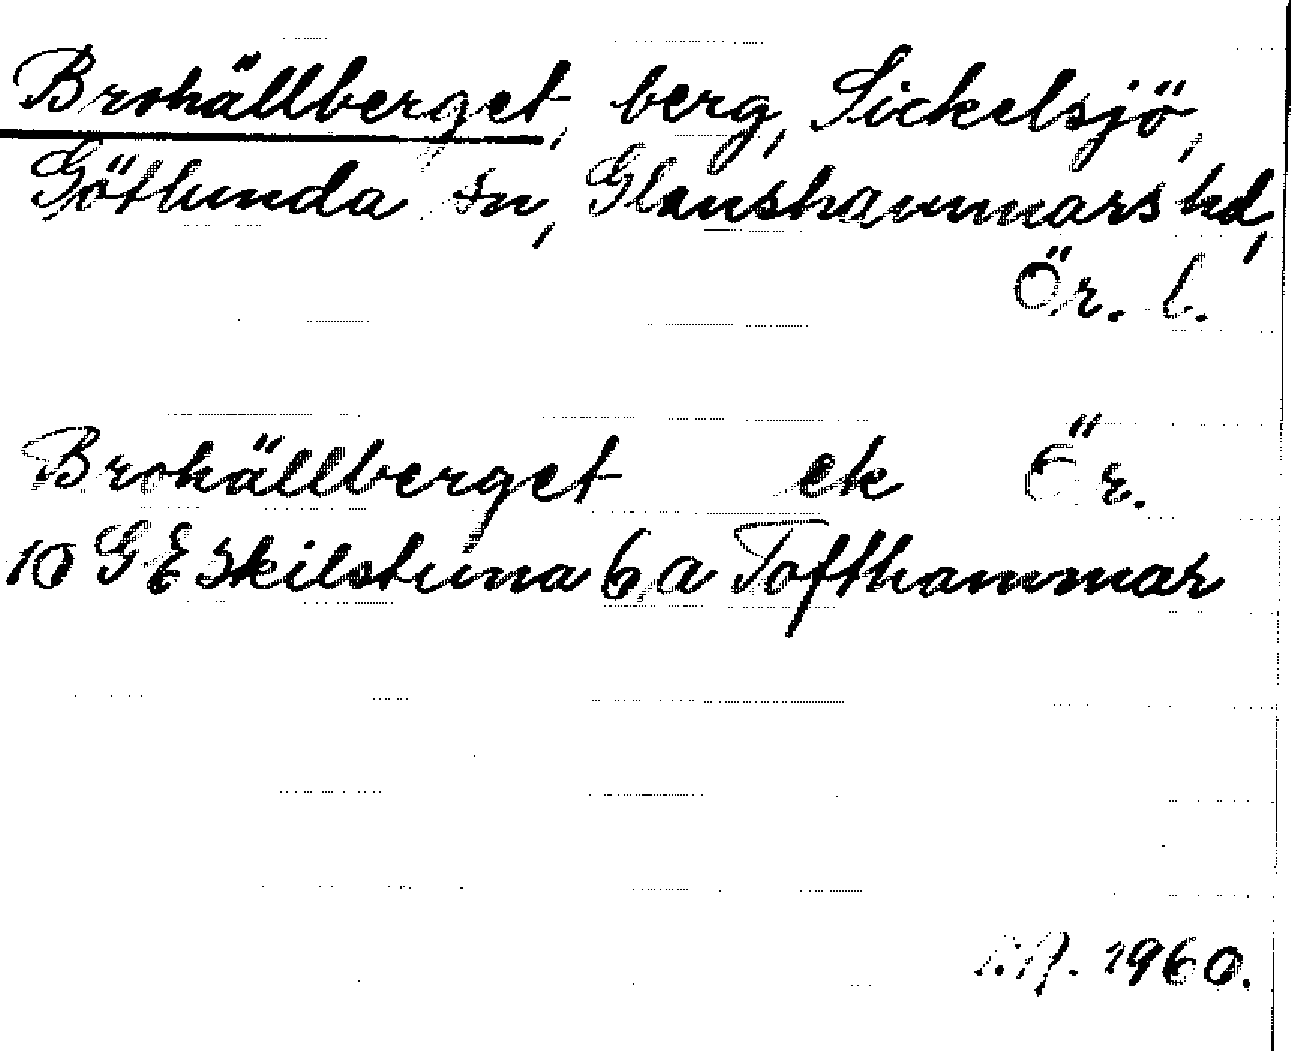 Brohällberget, berg, Sickelsjö,
Götlunda sn, Glanshammars hd,
Ör. l.
Brohällberget ek Ör.
10 G Eskilstuna 6 a Tofthammar
1960.